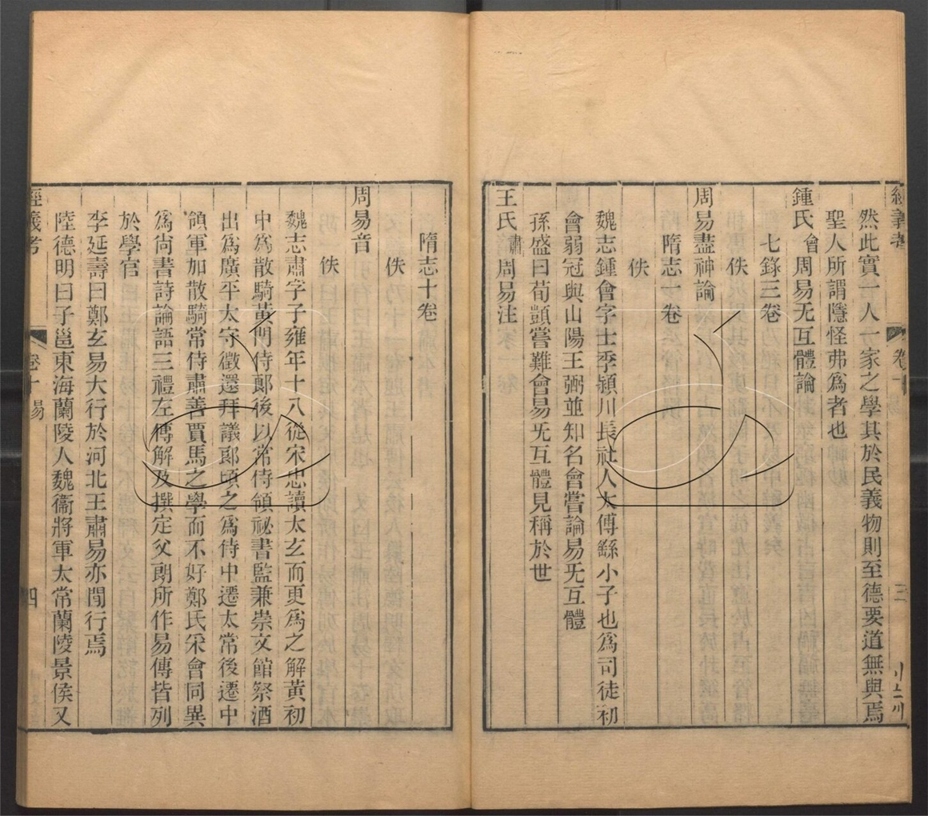 經義考
卷十 易
三
然此實一人一家之學其於民義物則至德要道無與焉
聖人所謂隱怪弗為者也
鍾氏會周易无互體論
七錄三卷
佚
周易盡神論
隋志一卷
佚
魏志鍾會字士季潁川長社人太傅繇小子也為司徒初
會弱冠與山陽王弼並知名會嘗論易旡互體
孫盛曰荀顗嘗難會易旡互體見稱於世
王氏肅周易注
隋志十卷
佚
周易音
佚
魏志肅字子雍年十八從宋忠讀太玄而更為之解黃初
中為散騎黃門侍郎後以常侍領祕書監兼崇文館祭酒
出為廣平太守徵還拜議郎頃之為侍中遷太常後遷中
領軍加散騎常侍肅善賈馬之學而不好鄭氏采會同異
為尚書詩論語三禮左傳解及撰定父朗所作易傳皆列
於學官
李延壽曰鄭玄易大行於河北王肅易亦閒行焉
陸德明曰子邕東海蘭陵人魏衞將軍太常蘭陵景侯又
經義考
卷十 易
四